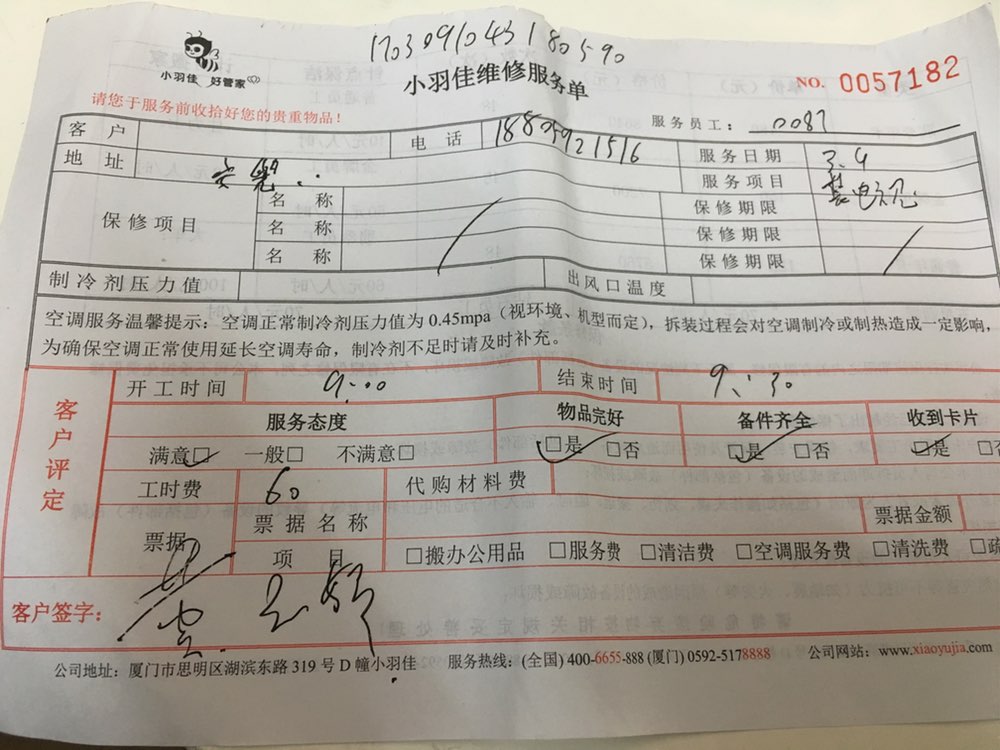 1703091043180590
小羽佳 好管家
小羽佳维修服务单
NO. 0057182
请您于服务前收拾好您的贵重物品！
服务员工： 0087
客户 电话 18805921516 服务日期 3.9
地址 服务项目
保修项目 名称 保修期限
名称 保修期限
名称 保修期限
制冷剂压力值 出风口温度
空调服务温馨提示：空调正常制冷剂压力值为 0.45mpa（视环境、机型而定），拆装过程会对空调制冷或制热造成一定影响，
为确保空调正常使用延长空调寿命，制冷剂不足时请及时补充。
客户评定
开工时间 9:00 结束时间 9:30
服务态度 物品完好 备件齐全 收到卡片
满意□ 一般□ 不满意□ □是 □否 □是 □否 □是 □不
工时费 60 代购材料费
票据 票据名称 票据金额
项目 □搬办公用品 □服务费 □清洁费 □空调服务费 □清洗费 □疏
客户签字：
公司地址：厦门市思明区湖滨东路 319 号 D 幢小羽佳 服务热线：(全国) 400-6655-888 (厦门) 0592-5178888 公司网站：www.xiaoyujia.com